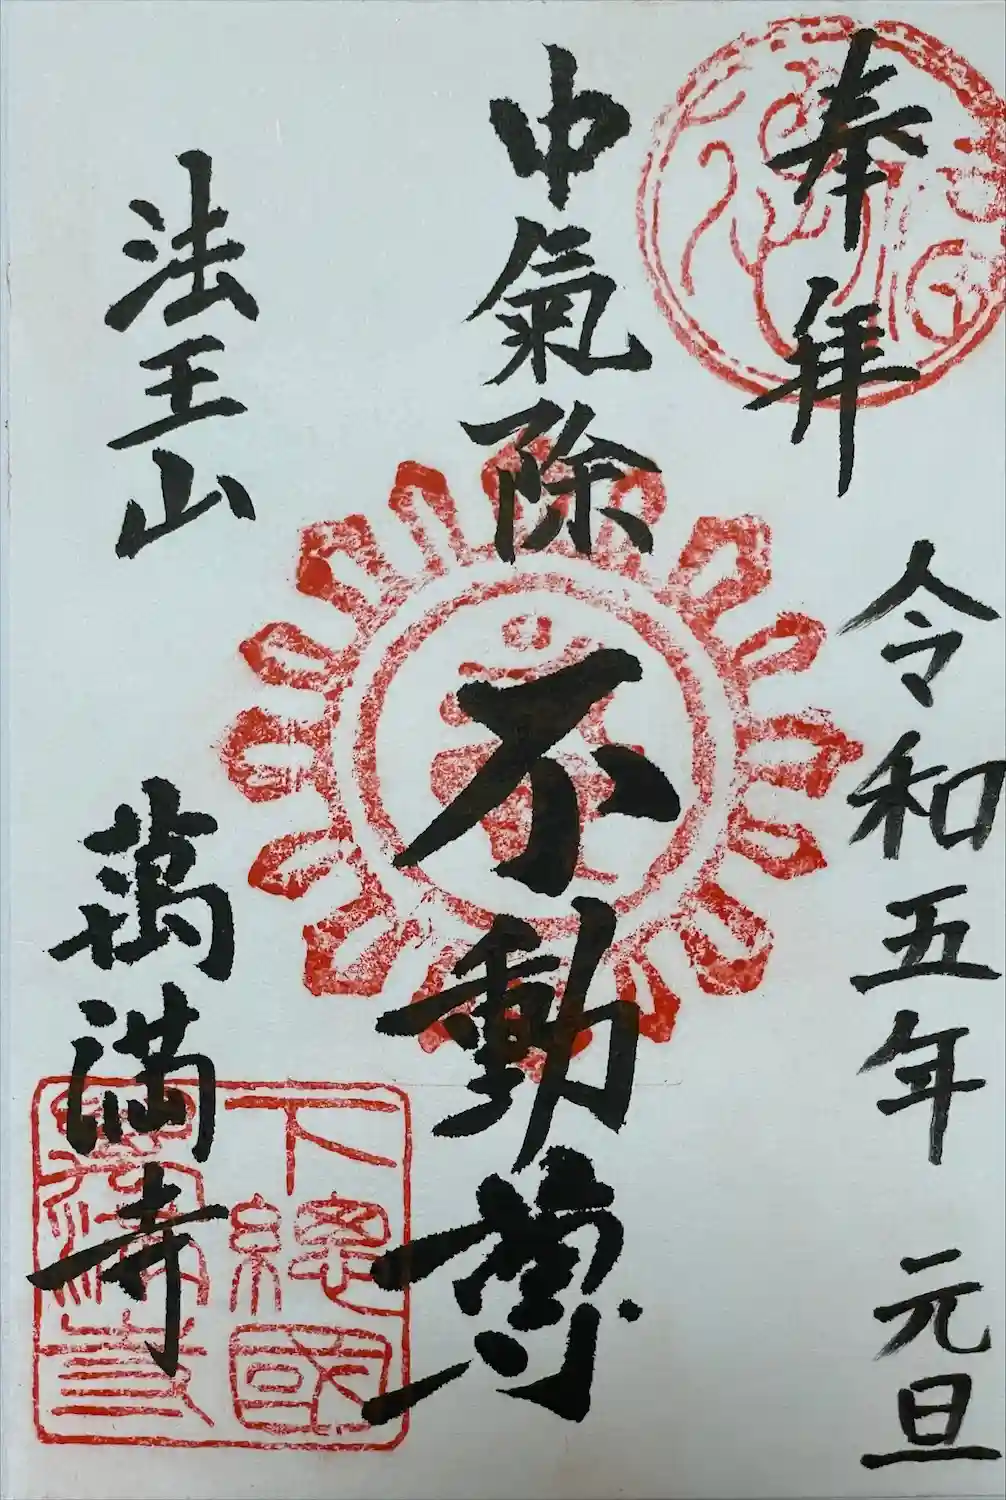 奉拝 令和五年 元旦
中氣除 不動尊
法王山 萬満寺
下總國
萬満寺